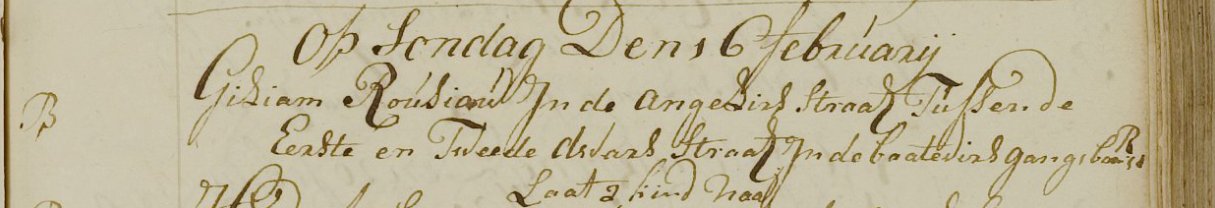 Op Sondag Den 16 februarij
B Giliam Rousiau In de Angelirs Straat Tussen de
Eerste en Tweede dwars Straat In de baatevirs gang
Laat 2 kind Naa